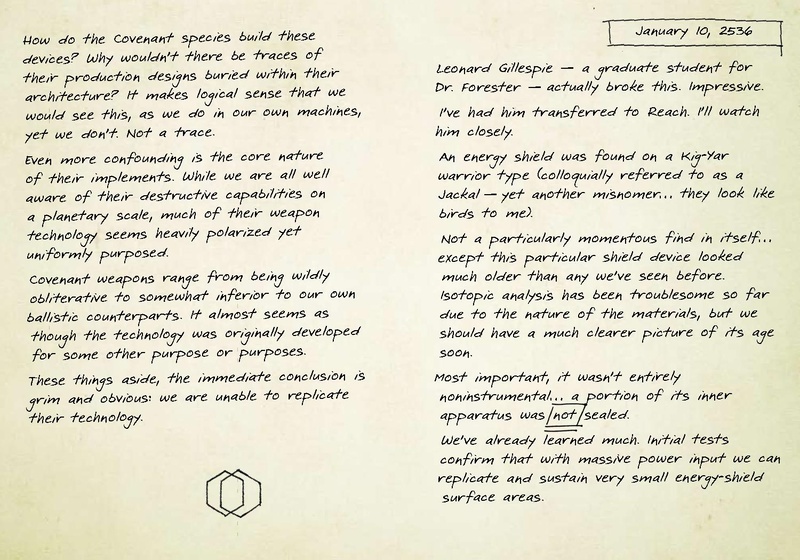 How do the Covenant species build these
devices? Why wouldn't there be traces of
their production designs buried within their
architecture? It makes logical sense that we
would see this, as we do in our own machines,
yet we don't. Not a trace.
Even more confounding is the core nature
of their implements. While we are all well
aware of their destructive capabilities on
a planetary scale, much of their weapon
technology seems heavily polarized yet
uniformly purposed.
Covenant weapons range from being wildly
obliterative to somewhat inferior to our own
ballistic counterparts. It almost seems as
though the technology was originally developed
for some other purpose or purposes.
These things aside, the immediate conclusion is
grim and obvious: we are unable to replicate
their technology.
January 10, 2536
Leonard Gillespie — a graduate student for
Dr. Forester — actually broke this. Impressive.
I've had him transferred to Reach. I'll watch
him closely.
An energy shield was found on a Kig-Yar
warrior type (colloquially referred to as a
Jackal — yet another misnomer... they look like
birds to me).
Not a particularly momentous find in itself...
except this particular shield device looked
much older than any we've seen before.
Isotopic analysis has been troublesome so far
due to the nature of the materials, but we
should have a much clearer picture of its age
soon.
Most important, it wasn't entirely
noninstrumental... a portion of its inner
apparatus was not sealed.
We've already learned much. Initial tests
confirm that with massive power input we can
replicate and sustain very small energy-shield
surface areas.